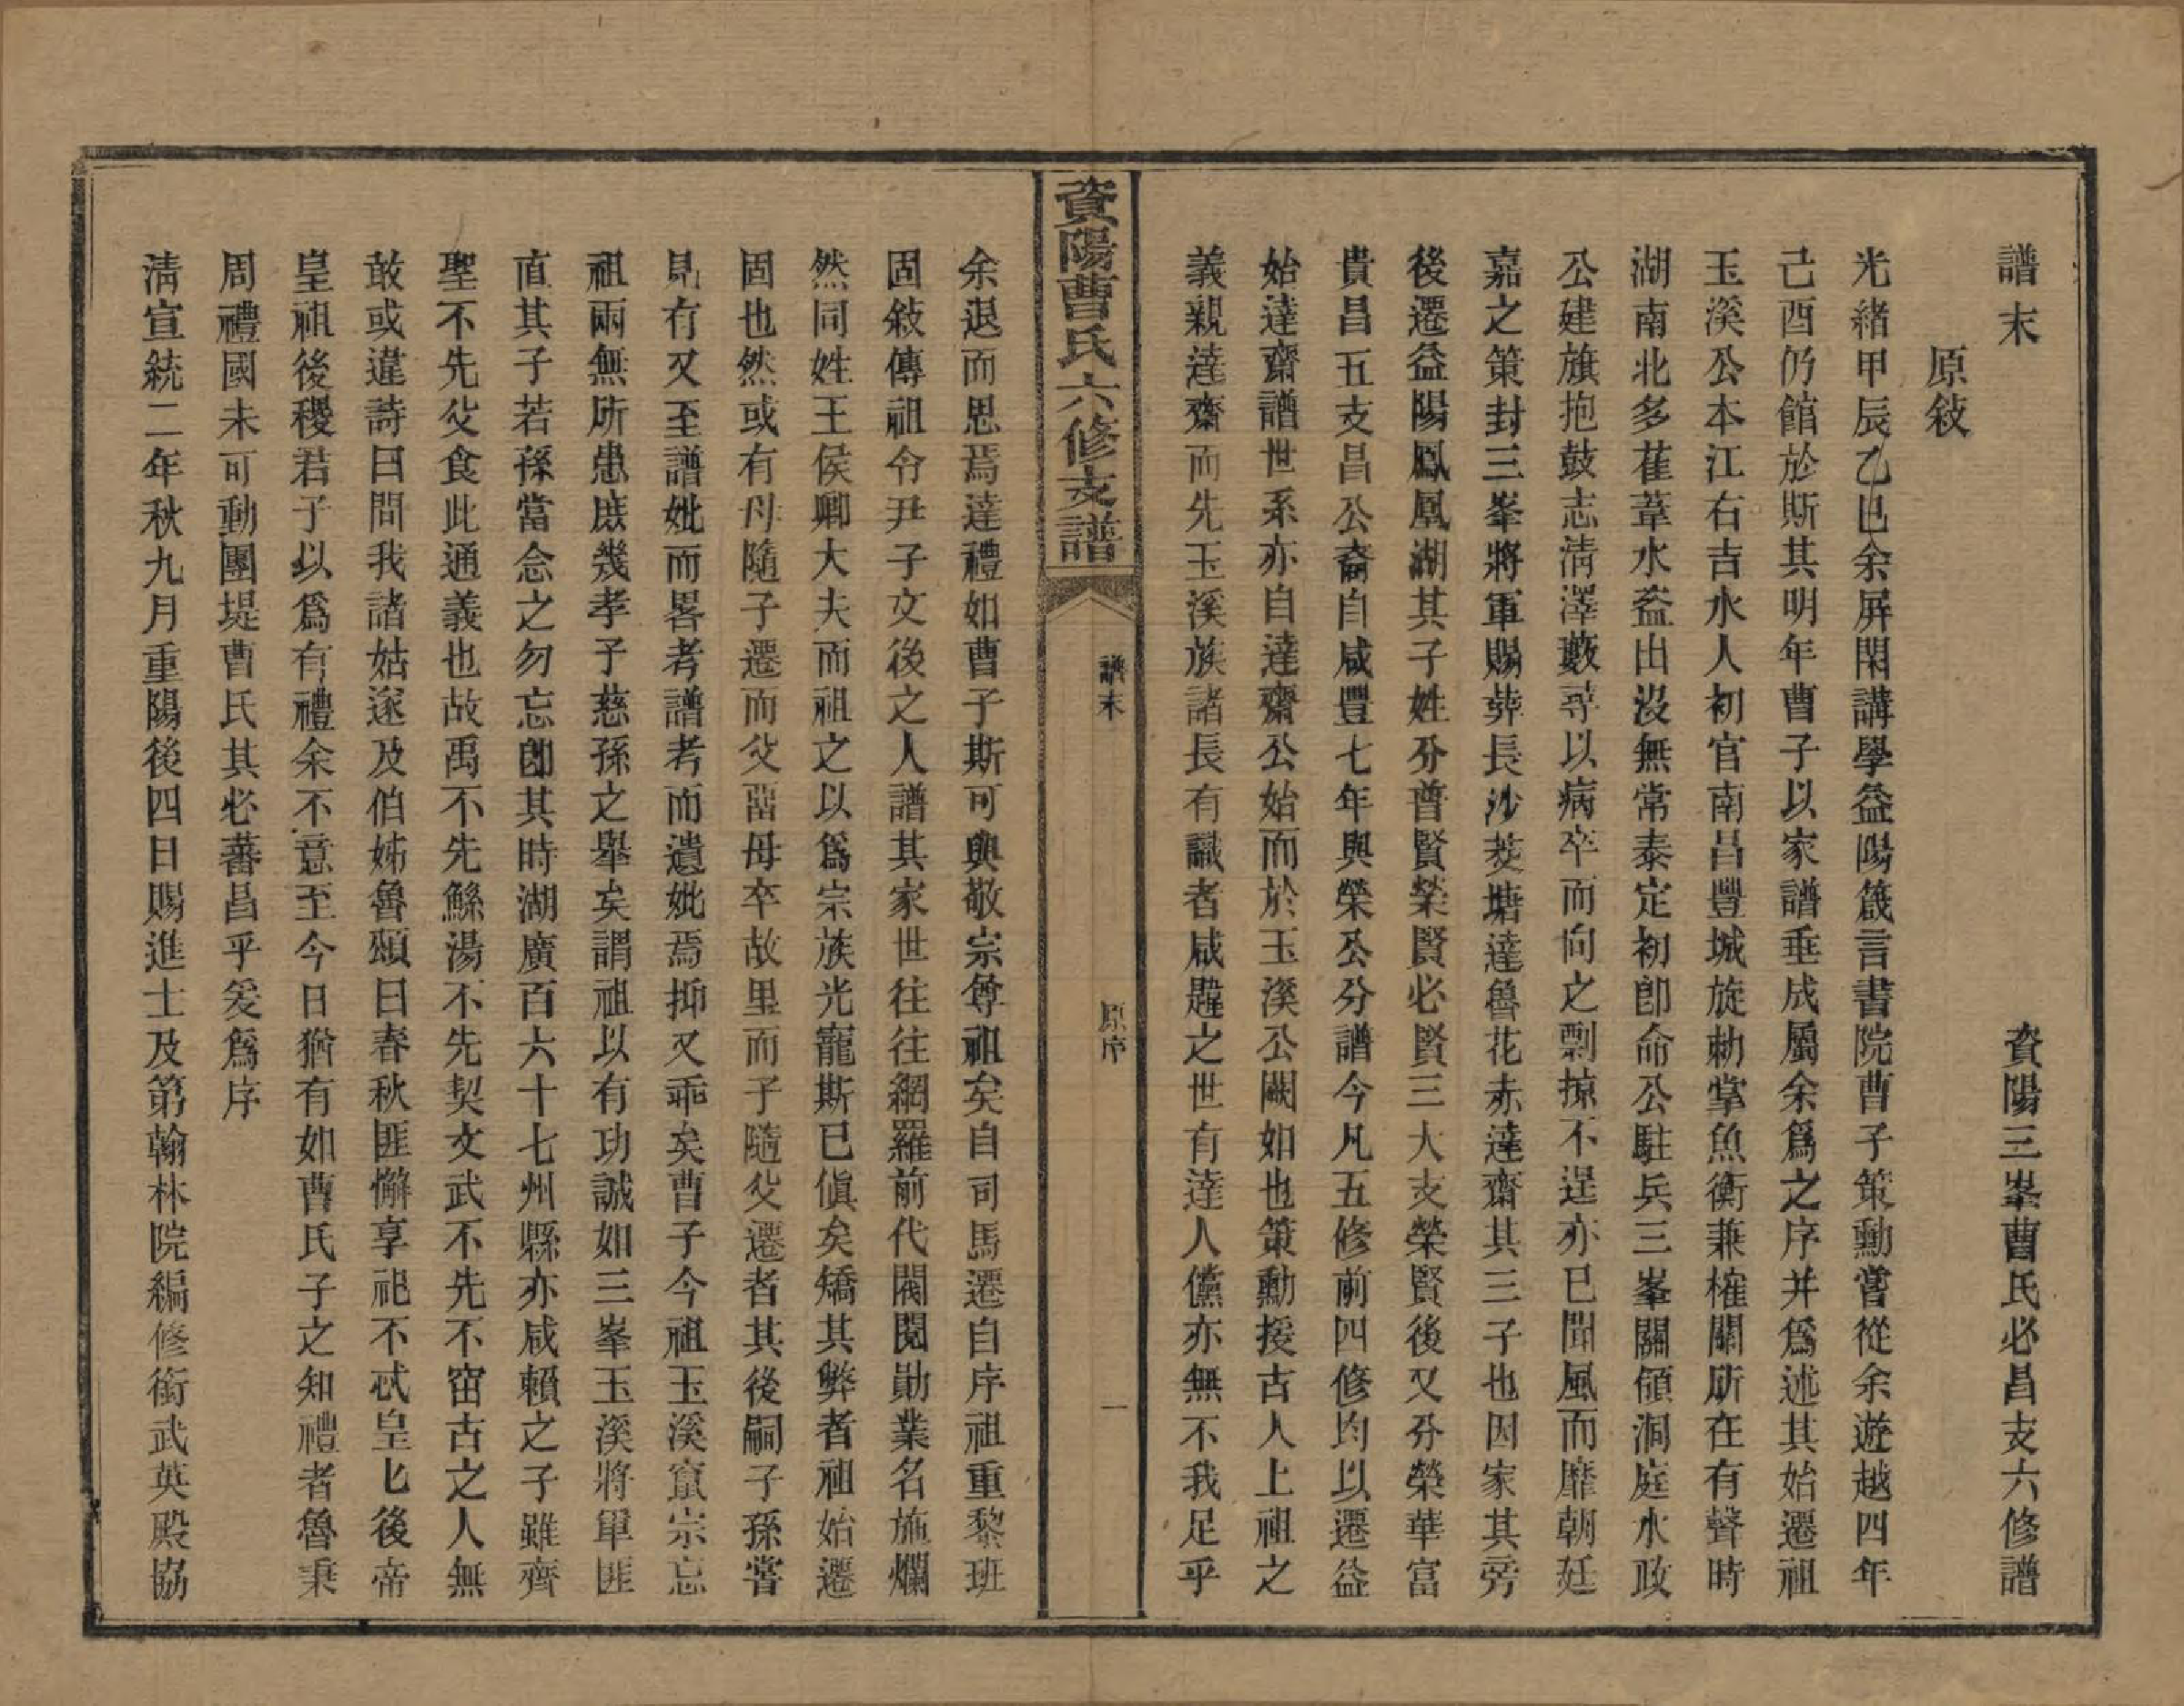 譜末　資陽三峯曹氏必昌支六修譜
原敍
光緒甲辰乙巳余屏閑講學益陽箴言書院曹子策勳嘗從余遊越四年
己酉仍館於斯其明年曹子以家譜垂成屬余爲之序并爲述其始遷祖
玉溪公本江右吉水人初官南昌豐城旋勅掌魚衡兼榷關所在有聲時
湖南北多萑葦水盜出沒無常泰定初卽命公駐兵三峯關領洞庭水政
公建旗抱鼓志淸澤藪尋以病卒而向之剽掠不逞亦已聞風而靡朝廷
嘉之策封三峯將軍賜葬長沙茭塘達魯花赤達齋其三子也因家其旁
後遷益陽鳳凰湖其子姓分普賢榮賢必賢三大支榮賢後又分榮華富
貴昌五支昌公裔自咸豐七年與榮公分譜今凡五修前四修均以遷益
始達齋譜世系亦自達齋公始而於玉溪公闕如也策勳援古人上祖之
義親達齋而先玉溪族諸長有識者咸韙之世有達人儻亦無不我足乎
資陽曹氏六修支譜　譜末　原序　一
余退而思焉達禮如曹子斯可與敬宗尊祖矣自司馬遷自序祖重黎班
固敍傳祖令尹子文後之人譜其家世往往網羅前代閥閱勛業名施爛
然同姓王侯卿大夫而祖之以爲宗族光寵斯已傎矣矯其弊者祖始遷
固也然或有母隨子遷而父留母卒故里而子隨父遷者其後嗣子孫嘗
見有又至譜妣而畧考譜考而遺妣焉抑又乖矣曹子今祖玉溪宣宗忘
祖兩無所患庶幾孝子慈孫之舉矣謂祖以有功誠如三峯玉溪將軍匪
直其子若孫當念之勿忘卽其時湖廣百六十七州縣亦咸賴之子雖齊
聖不先父食此通義也故禹不先鯀湯不先契文武不先不窋古之人無
敢或違詩曰問我諸姑遂及伯姊魯頌曰春秋匪懈享祀不忒皇七後帝
皇祖後稷君子以爲有禮余不意至今日猶有如曹氏子之知禮者魯秉
周禮國未可動團堤曹氏其必蕃昌乎爰爲序
淸宣統二年秋九月重陽後四日賜進士及第翰林院編修銜武英殿協